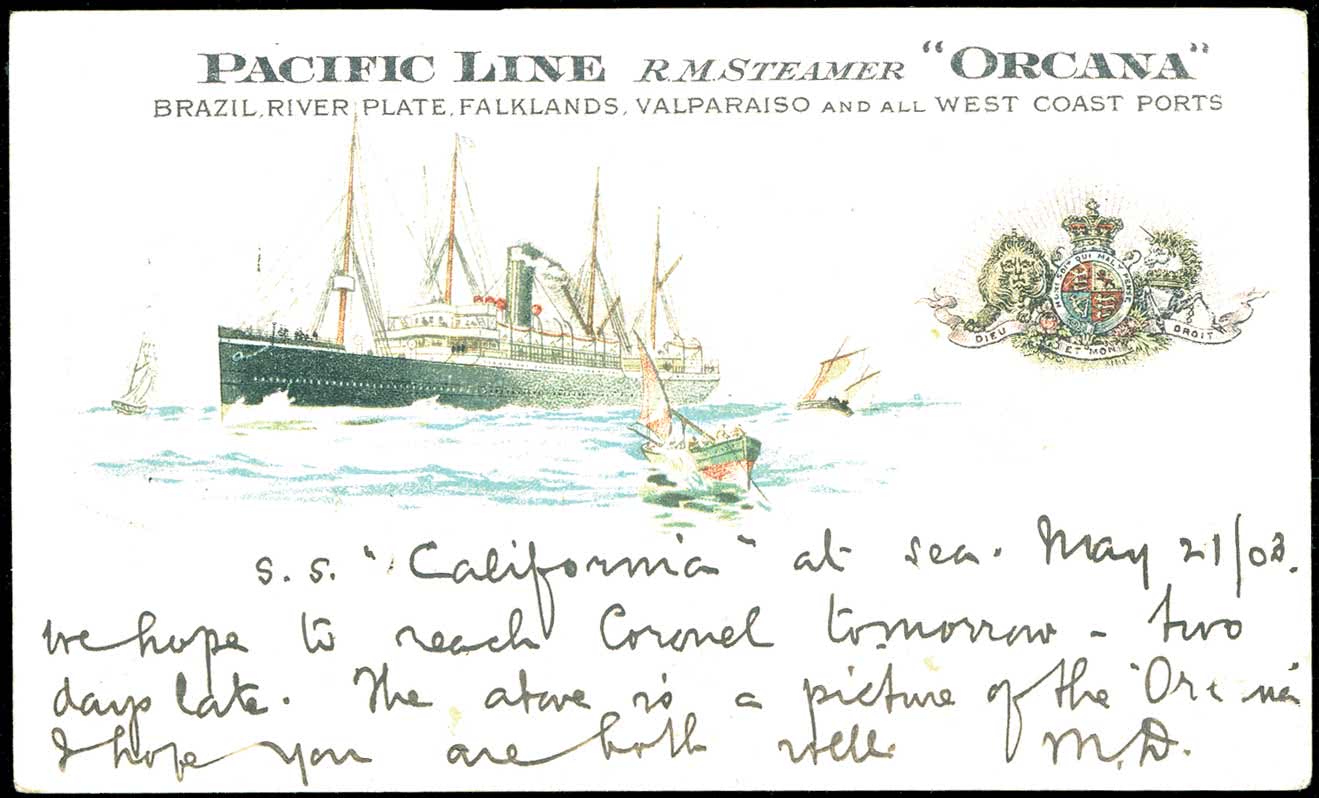 PACIFIC LINE R.M. STEAMER "ORCANA"
BRAZIL, RIVER PLATE, FALKLANDS, VALPARAISO AND ALL WEST COAST PORTS
QUI MAL Y PENSE
DIEU ET MON DROIT
S.S. "California" at sea. May 21/03.
We hope to reach Coronel tomorrow - two
days late. The above is a picture of the
I hope you are both well. M.D.